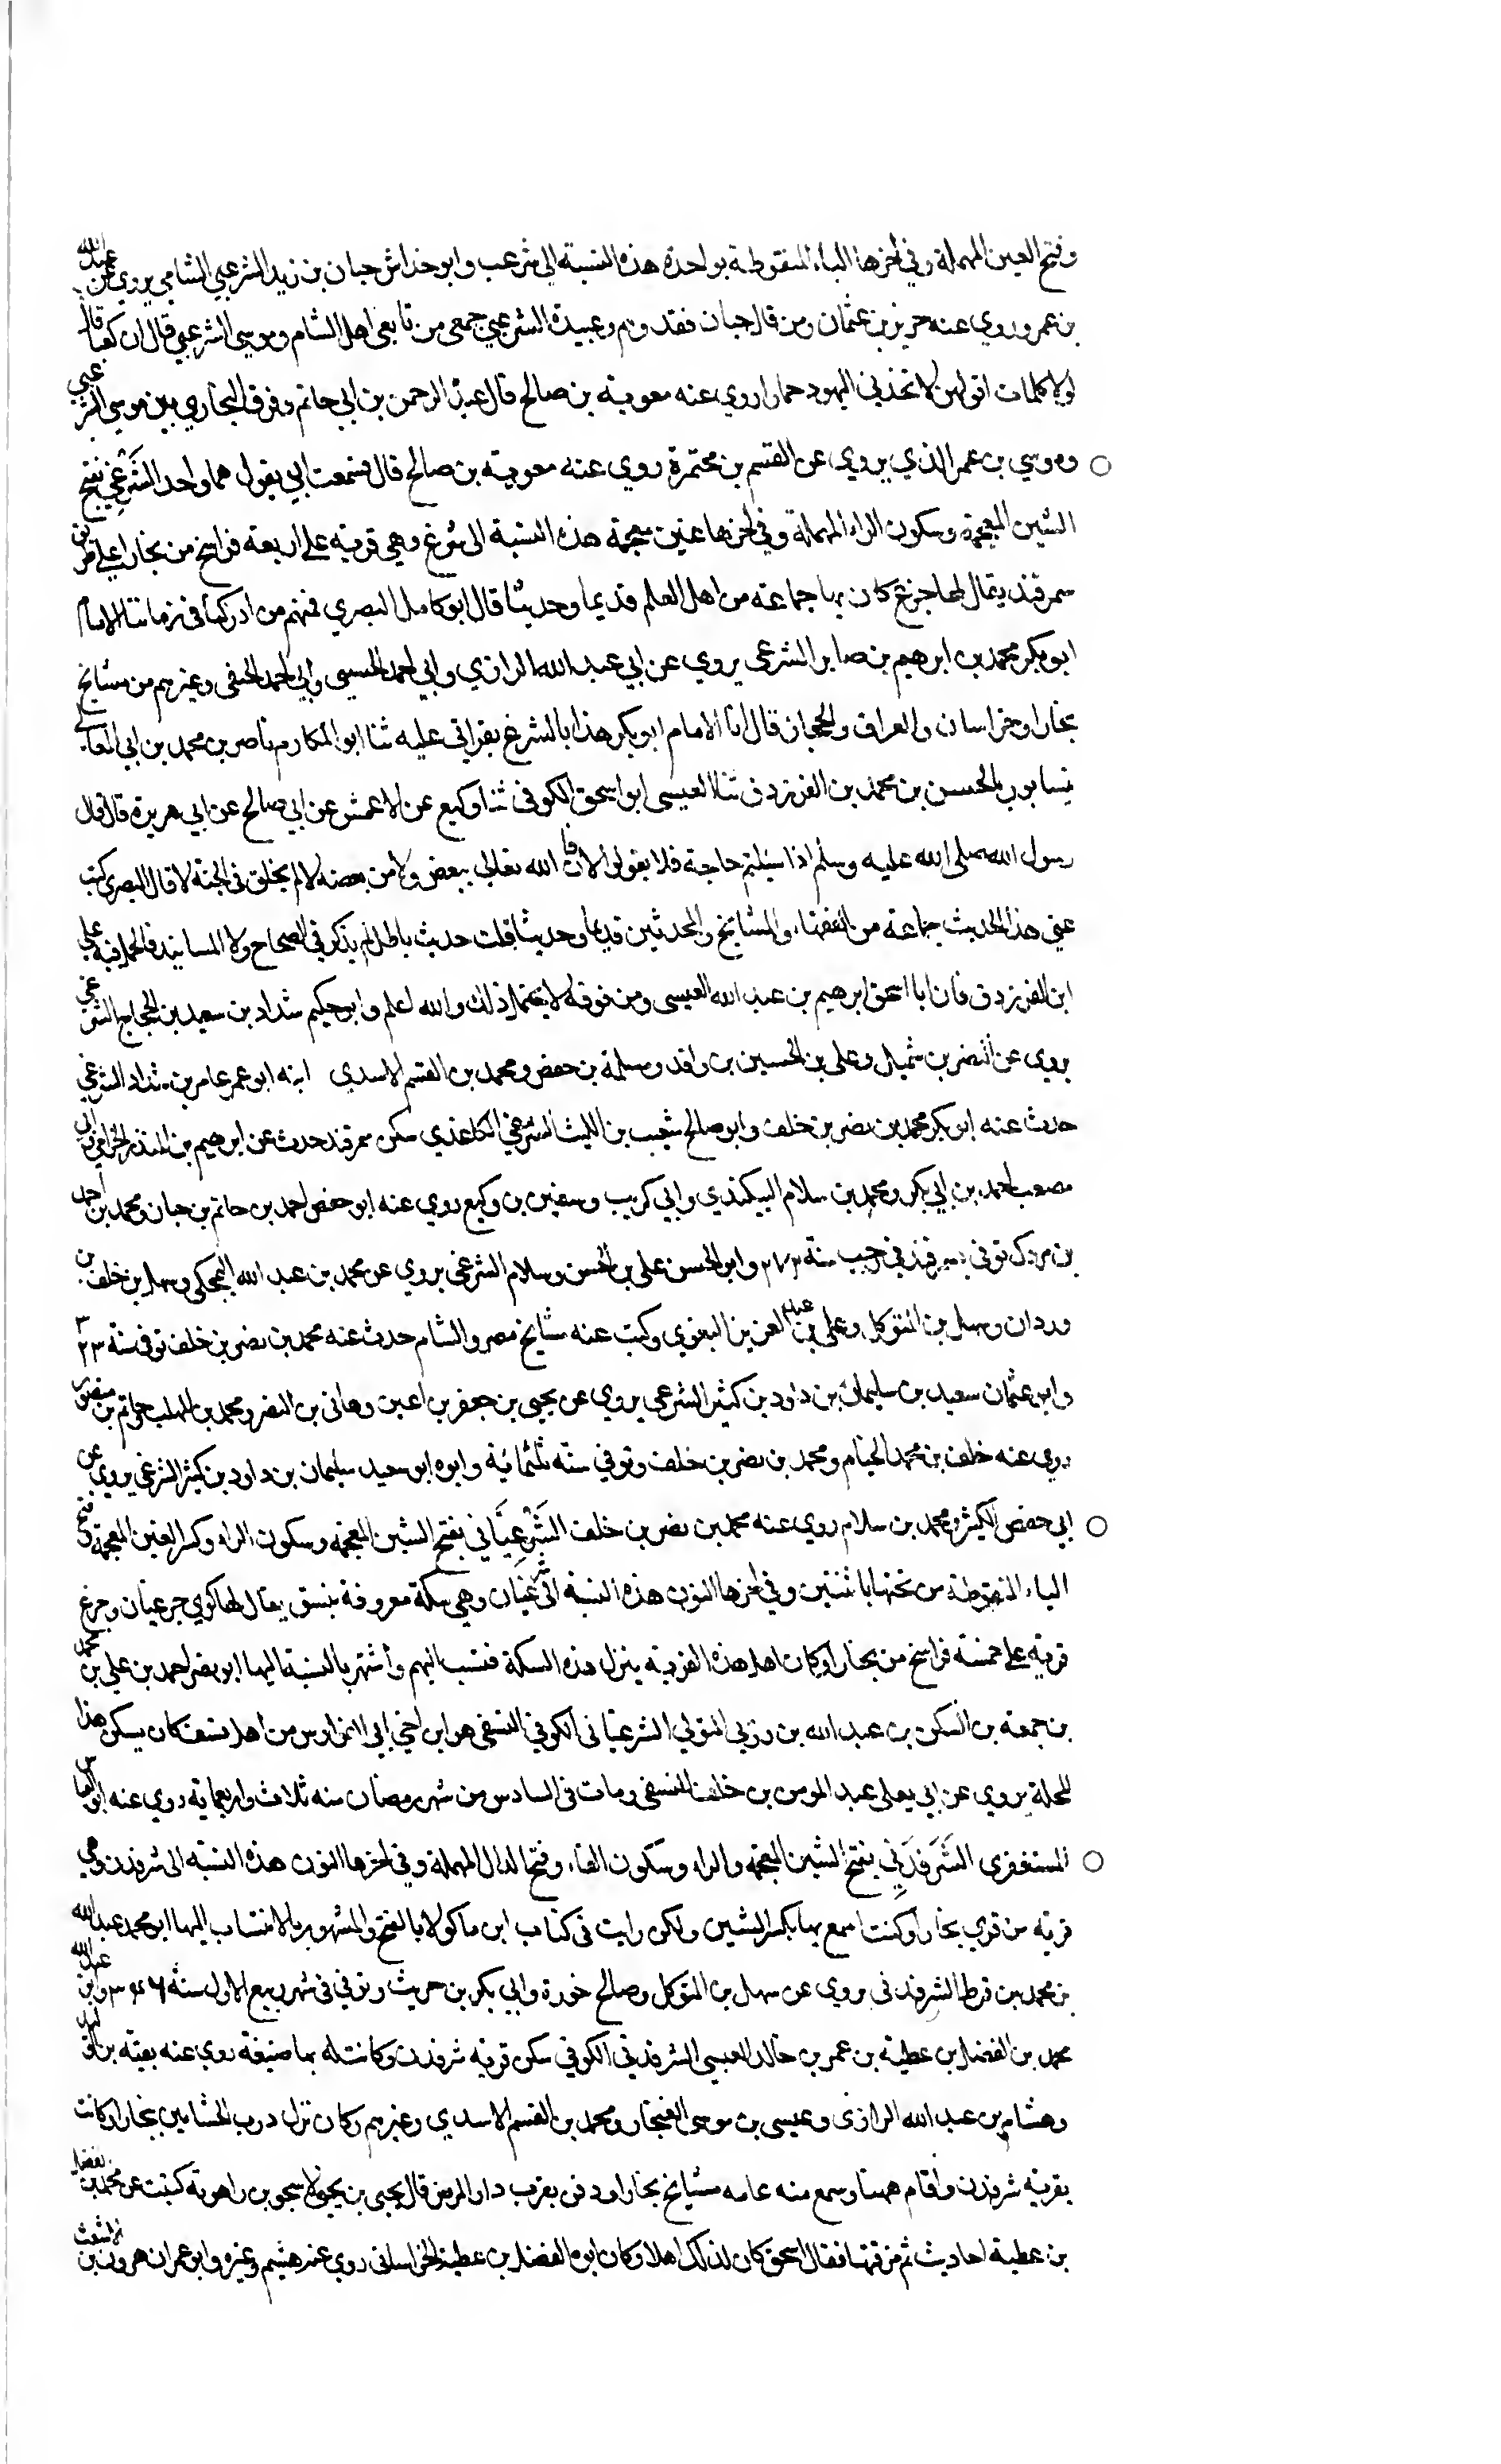 وفتح العين المهملة وفي اخرها الباء المنقوطة بواحدة هذه النسبة الي شرعب وابو خداش حبان بن زيد الشرعبي الشامي يروي عن عبد الله
بن عمرو روي عنه حريز بن عثمان ومن قال حبان فقد وهم وعبيدة الشرعبي حمصي من تابعي اهل الشام وموسي الشرعبي قال ان كعبا قال
لولا كلمات اقولهن لاتخذني اليهود حمارا روي عنه معوية بن صالح قال عبد الرحمن بن ابي حاتم وفرق البخاري بين موسي الشرعبي
وموسي بن عمر الذي يروي عن القسم بن مخيمرة روي عنه معوية بن صالح قال فسمعت ابي يقول هما واحد الشَرْغي بفتح
الشين المعجمة وسكون الراء المهملة وفي اخرها غين معجمة هذه النسبة الى شرغ وهي قرية علي اربعة فراسخ من بخارا علي طريق
سمرقند يقال لها جرغ كان بها جماعة من اهل العلم قديما وحديثا قال ابو كامل البصري فمنهم من ادركنا في زماننا الامام
ابو بكر محمد بن ابرهيم بن صابر الشرغى يروي عن ابي عبد الله الرازي وابي احمد وابي احمد الحنفى وغيرهم من مشايخ
بخارا وخراسان والعراق والحجاز قال انا الامام ابو بكر هذا بالشرغ بقراتي عليه ثنا ابو المكارم ناصر بن محمد بن ابي المعالي
بنسابور الحسن بن محمد بن الفرزدق ثنا العبسى ابو اسحق الكوفى ثنا وكيع عن الاعمش عن ابي صالح عن ابي هريرة قال قال
رسول الله صلى الله عليه وسلم اذا سئلتم حاجة فلا تقولوا لا فان الله تعالي يبغض ولا من يبغضه لا لم يخلق في الجنة لا قال البصري كتب
عني هذا الحديث جماعة من الفقهاء والمشايخ والمحدثين قديما وحديثا قلت حديث باطل لم يذكر في الصحاح ولا المسانيد فالحمل فيه علي
ابن الفرزدق فان ابا اسحق ابرهيم بن عبد الله العبسى ومن فوقه لا يحتمل ذلك والله اعلم وابو حكيم شداد بن سعيد بن الحجاج الشرغي
يروي عن النضر بن شميل وعلي بن الحسين بن واقد ومسلمة بن حفص ومحمد بن القسم الاسدي ابنه ابو عمر عامر بن شداد الشرغي
حدث عنه ابو بكر محمد بن نصر بن خلف وابو صالح شعيب بن الليث الشرغي الكاغذي سكن سمرقند حدث عن ابرهيم بن المنذر الحزامي وابي
مصعب احمد بن ابي بكر ومحمد بن سلام البيكندي وابي كريب وسفين بن وكيع روي عنه ابو حفص احمد بن حاتم بن حبان ومحمد بن احمد
بن مردك توفي بسمرقند في رجب سنة ٢٧٣ وابو الحسن علي بن الحسن وسلام الشرغي يروي عن محمد بن عبد الله وسهل بن خلف بن
وردان وسهل بن المتوكل وعلي بن عبد العزيز البغوي وكتب عنه مشايخ مصر والشام حدث عنه محمد بن نصر بن خلف توفي سنة ٣٢٣
وابو عثمان سعيد بن سليمان بن داود بن كثير الشرغي يروي عن يحيى بن جعفر بن اعين وهانى بن النضر ومحمد بن المهلب وحاتم بن منصور
روي عنه خلف بن محمد الخيام ومحمد بن نصر بن خلف وتوفي سنة ثلثمائية وابوه ابو سعيد سليمان بن داود بن كثير الشرغي يروي عن
ابي حفص الكبير ومحمد بن سلام روي عنه محمد بن نصر بن خلف الشَرْغِيَاني بفتح الشين المعجمة وسكون الراء وكسر الغين المعجمة وفتح
الياء المنقوطة من تحتها باثنتين وفي اخرها النون هذه النسبة الي شرغيان وهي سكة معروفة بنسف يقال لها كوي جرغيان وجرغ
قرية علي خمسة فراسخ من بخارا وكان اهل هذه القرية ينزل هذه السكة فنسب اليهم واشتهر بالنسبة اليها ابو نصر احمد بن علي بن محمد
بن جمعة بن السكن بن عبد الله بن رزين المولي الشرغيانى الكوفي النسفي هو ابن اخي ابي الفوارس من اهل نسف كان يسكن هذا
المحلة يروي عن ابي يعلى عبد المومن بن خلف النسفي ومات فى السادس من شهر رمضان سنه ثلاث واربعماية روي عنه ابو العباس
المستغفرى الشَرَفْدَني بفتح الشين المعجمة والراء وسكون الفاء وفتح الدال المهملة وفي اخرها النون هذه النسبة الى شرفدن وهي
قرية من قري بخارا وكنت اسمع بها بكسر الشين ولكن رايت فى كتاب ابن ماكولا بالفتح والمشهور بالانتساب اليها ابو محمد عبد الله
بن محمد بن قرط الشرفدنى يروي عن سهل بن المتوكل وصالح جزرة وابي بكر بن حريث وتوفي فى شهر ربيع الاول سنة ٣٤٦ وابو عبد الله
محمد بن الفضل بن عطية بن عمر بن خالد العبسى الشرفدني الكوفي سكن قرية شرفدن وكانت له بها ضيعة روي عنه بقية بن الوليد
وهشام بن عبد الله الرازى وعيسى بن موسى الغنجار ومحمد بن القسم الاسدي وغيرهم وكان نزل درب الخشابين ببخارا وكانت
بقرية شرفدن واقام ههنا وسمع منه عامة مشايخ بخارا ودفن بقرب دار المرضى قال يحيى بن يحيى لاسحق بن راهوية كتبت عن محمد بن الفضل
بن عطية احاديث ثم مزقتها فقال اسحق كان لذلك اهلا وكان ابوه الفضل بن عطية الخراسانى روي عنه هشيم وغيره وابو عمران هرون بن الاشعث